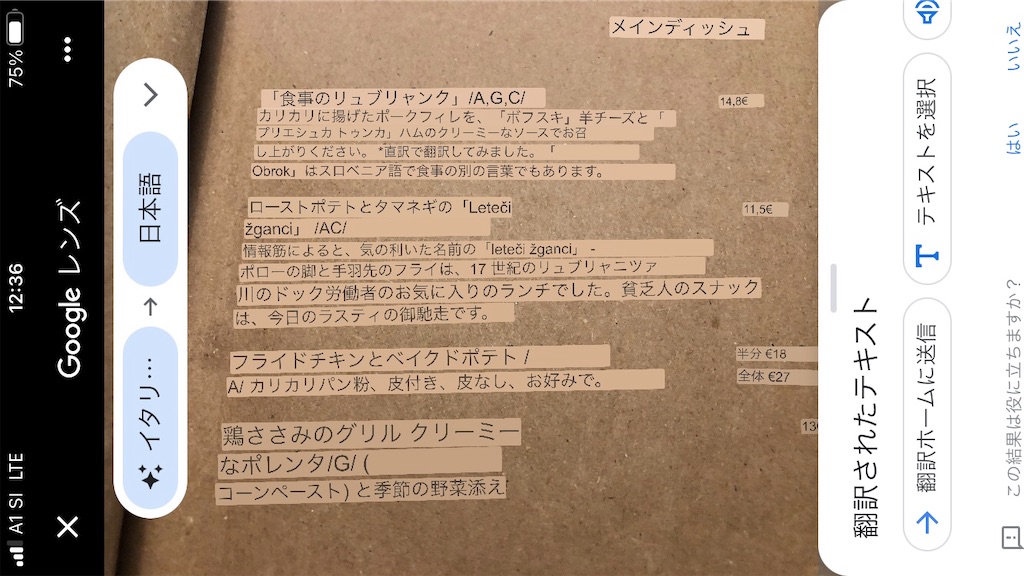 メインディッシュ
「食事のリュブリャンク」/A,G,C/
14,8€
カリカリに揚げたポークフィレを、「ボフスキ」羊チーズと「
プリエシュカ トゥンカ」ハムのクリーミーなソースでお召
し上がりください。 *直訳で翻訳してみました。「
Obrok」はスロベニア語で食事の別の言葉でもあります。
ローストポテトとタマネギの「Leteči
žganci」 /AC/
11,5€
情報筋によると、気の利いた名前の「leteči žganci」 -
ポローの脚と手羽先のフライは、17 世紀のリュブリャニツァ
川のドック労働者のお気に入りのランチでした。貧乏人のスナック
は、今日のラスティの御馳走です。
フライドチキンとベイクドポテト /
A/ カリカリパン粉、皮付き、皮なし、お好みで。
半分 €18
全体 €27
鶏ささみのグリル クリーミー
なポレンタ/G/ (
コーンペースト) と季節の野菜添え
A1 SI LTE
12:36
75%
Google レンズ
イタリ…
→
日本語
翻訳されたテキスト
翻訳ホームに送信
テキストを選択
この結果は役に立ちますか?
はい
いいえ